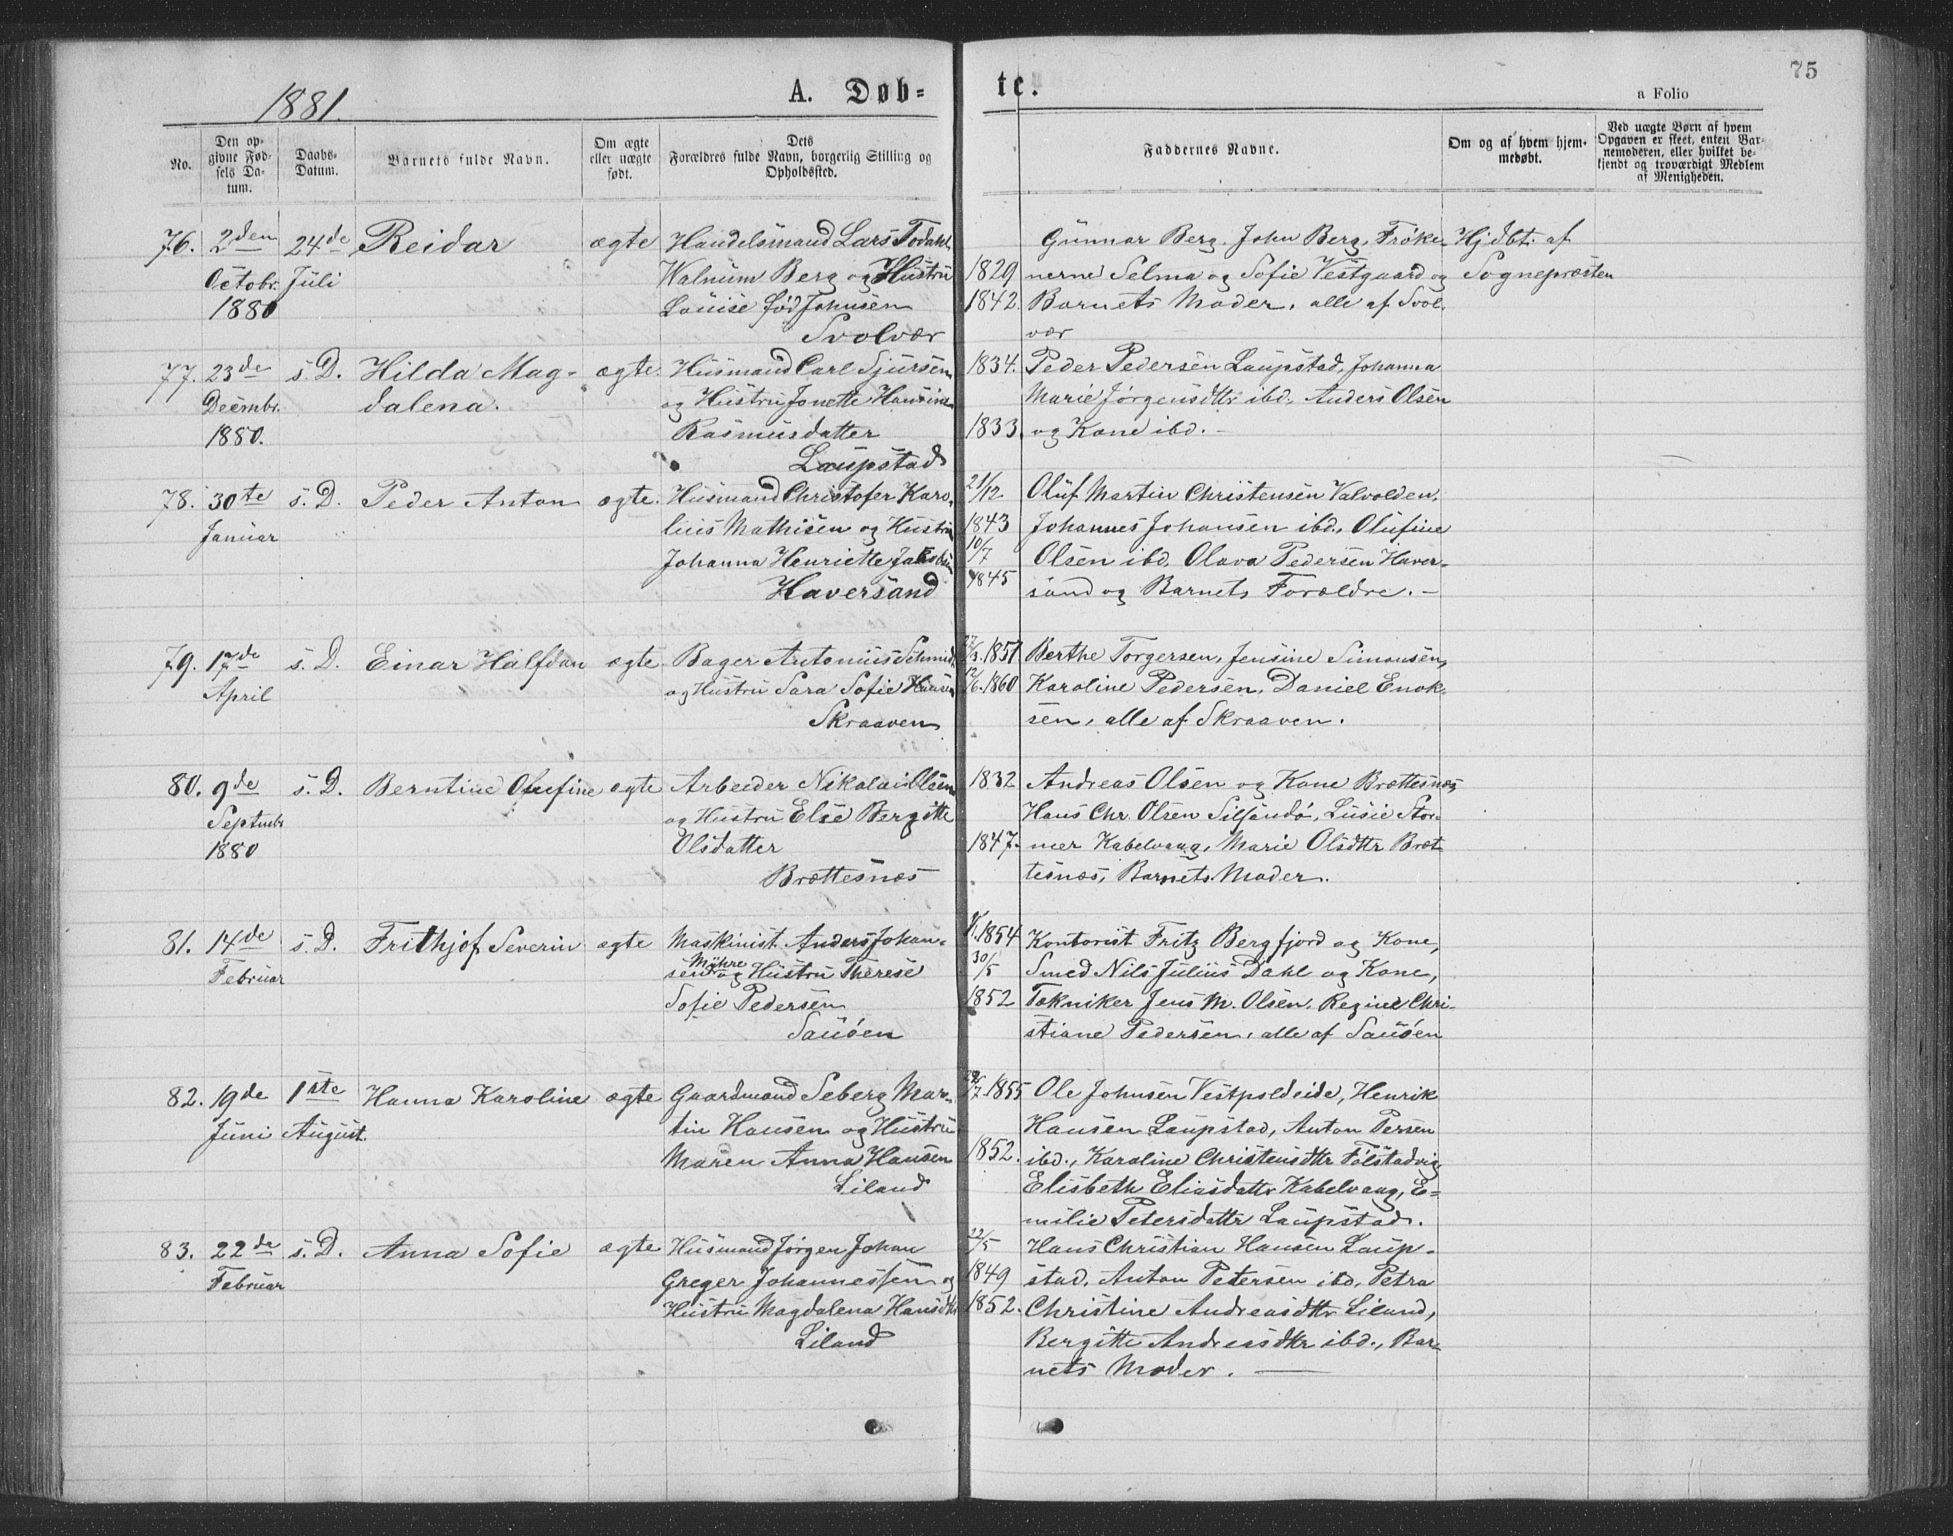 1881.
A. Døb-
te.
75
a Folio
No.
Den op-
givne Fød-
sels Da-
tum.
Daabs-
Datum.
Barnets fulde Navn.
Om ægte
eller uægte
født.
Dets
Forældres fulde Navn, borgerlig Stilling og
Opholdssted.
Faddernes Navne.
Om og af hvem hjem-
medøbt.
Ved uægte Børn af hvem
Opgaven er skeet, enten Bar-
nemoderen, eller hvilket be-
kjendt og troværdigt Medlem
af Menigheden.
76.
2den
Octobr.
1880
24de
Juli
Reidar
ægte
Handelsmand Lars Todahl
Walnum Berg og Hustru
Louise fød Johnsen
Svolvær
1829
1842.
Gunnar Berg. John Berg, Frøke-
nerne Selma og Sofie Vestgaard og
Barnets Moder, alle af Svol-
vær
Hjdbt. af
Sognepræsten
77.
23de
Decmbr.
1880.
s. D.
Hilda Mag-
dalena.
ægte
Husmand Carl Sjursen
og Hustru Jonette Hansine
Rasmusdatter
Laupstad
1834.
1833.
Peder Pedersen Laupstad, Johanna
Marie Jørgensdttr ibd, Anders Olsen
og Kone ibd. -
78.
30te
Januar
s. D.
Peder Anton
ægte
Husmand Christofer Karo-
lius Mathisen og Hustru
Johanna Henriette Jakobsen
Haversand
21/12
1843
10/7
1845
Oluf Martin Christensen Valvolden,
Johannes Johansen ibd, Olufine
Olsen ibd, Olava Pedersen Haver-
sand og Barnets Forældre. -
79.
17de
April
s. D.
Einar Halfdan
ægte
Bager Antonius Schmidt
og Hustru Sara Sofie Hansen
Skraaven
1857
1860
Berthe Torgersen, Jensine Simonsen,
Karoline Pedersen, Daniel Enok-
sen, alle af Skraaven.
80.
9de
Septmbr
1880
s. D.
Berntine Olufine
ægte
Arbeider Nikolai Olsen
og Hustru Else Bergitte
Olsdatter
Brættesnæs
1832
1847.
Andreas Olsen og Kone Brættesnæs,
Hans Chr. Olsen Silsandø, Lusie Stor-
mer Kabelvaag, Marie Olsdttr Bræt-
tesnæs, Barnets Moder.
81.
14de
Februar
s. D.
Frithjof Severin
ægte
Maskinist Anders Johan-
sen Myhre og Hustru Therese
Sofie Pedersen
Sauøen
1854
30/5
1852
Kontorist Fritz Bergfjord og Kone,
Smed Nils Julius Dahl og Kone,
Tekniker Jens M. Olsen, Regine Chri-
stiane Pedersen, alle af Sauøen
82.
19de
Juni
1ste
August.
Hanna Karoline
ægte
Gaardmand Seberg Mar-
tin Hansen og Hustru
Maren Anna Hansen
Liland
1855
1852.
Ole Johnsen Vestpoldeide, Henrik
Hansen Laupstad, Anton Persen
ibd., Karoline Christensdttr Følstadvig
Elisbeth Eliasdattr Kabelvaag, E-
milie Petersdattr Laupstad.
83.
22de
Februar
s. D.
Anna Sofie
ægte
Husmand Jørgen Johan
Greger Johannessen og
Hustru Magdalena Hansdttr
Liland
22/5
1849
1852.
Hans Christian Hansen Laup-
stad, Anton Petersen ibd, Petra
Christine Andreasdttr Liland,
Bergitte Andreasdttr ibd., Bar-
nets Moder.